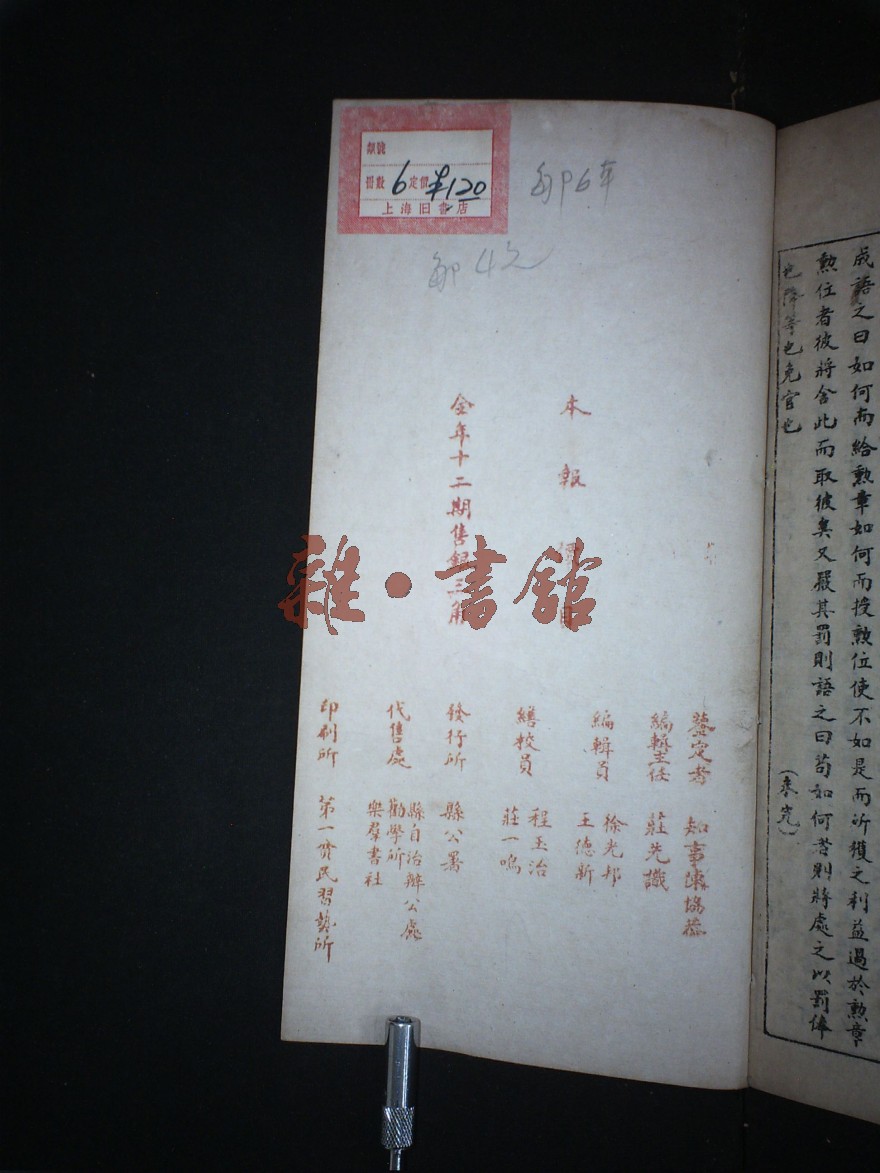 成語之曰如何而給勲章如何而授勲位使不如是而所獲之利益過於勲章
勲位者彼將舍此而取彼矣又嚴其罰則語之曰苟如何者則將處之以罰俸
也降等也免官也
(未完)
知事陳協恭
編輯主任 莊先識
編輯員 徐光邦
王德新
繕校員 程玉治
莊一鳴
發行所 縣公署
代售處 縣自治辦公處
勸學所
樂羣書社
印刷所 第一貧民習藝所
本報
全年十二期售銀三角
類號
冊數 6 定價 ¥1.20
上海旧書店
每P6年
每P4元
雜·書館